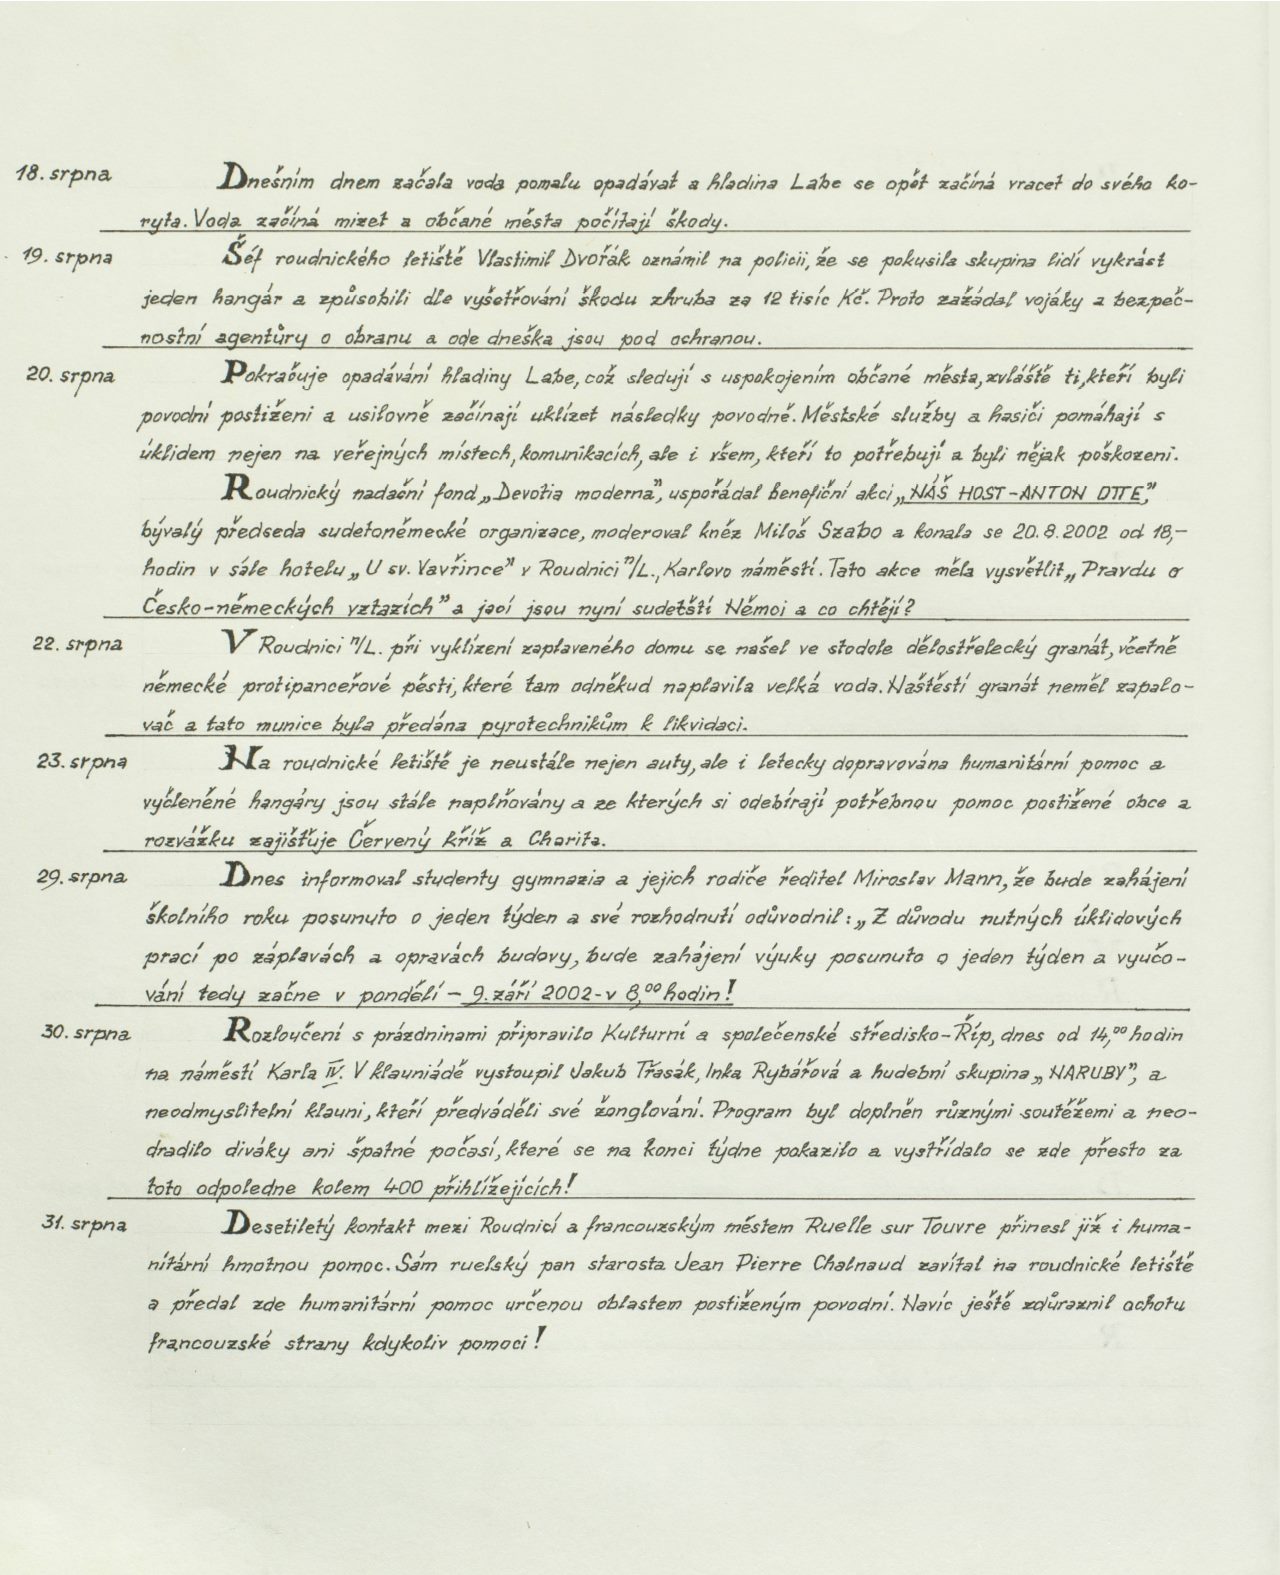 18. srpna Dnešním dnem začala voda pomalu opadávat a hladina Labe se opět začíná vracet do svého ko-
ryta. Voda začíná mizet a občané města počítají škody.
19. srpna Šéf roudnického letiště Vlastimil Dvořák oznámil na policii, že se pokusila skupina lidí vykrást
jeden hangár a způsobili dle vyšetřování škodu zhruba za 12 tisíc Kč. Proto zažádal vojáky a bezpeč-
nostní agentůry o obranu a ode dneška jsou pod ochranou.
20. srpna Pokračuje opadávání hladiny Labe, což sledují s uspokojením občané města, zvláště ti, kteří byli
povodní postiženi a usilovně začínají uklízet následky povodně. Městské služby a hasiči pomáhají s
úklidem nejen na veřejných místech, komunikacích, ale i všem, kteří to potřebují a byli nějak poškozeni.
Roudnický nadační fond „Devotia moderna", uspořádal benefiční akci „NÁŠ HOST-ANTON OTTE,"
bývalý předseda sudetoněmecké organizace, moderoval kněz Miloš Szabo a konala se 20.8.2002 od 18,-
hodin v sále hotelu „U sv. Vavřince" v Roudnici n/L., Karlovo náměstí. Tato akce měla vysvětlit „Pravdu o
Česko-německých vztazích" a jací jsou nyní sudetští Němci a co chtějí?
22. srpna V Roudnici n/L. při vyklízení zaplaveného domu se našel ve stodole dělostřelecký granát, včetně
německé protipanceřové pěsti, které tam odněkud naplavila velká voda. Naštěstí granát neměl zapalo-
vač a tato munice byla předána pyrotechnikům k likvidaci.
23. srpna Na roudnické letiště je neustále nejen auty, ale i letecky dopravována humanitární pomoc a
vyčleněné hangáry jsou stále naplňovány a ze kterých si odebírají potřebnou pomoc postižené obce a
rozvážku zajišťuje Červený kříž a Charita.
29. srpna Dnes informoval studenty gymnazia a jejich rodiče ředitel Miroslav Mann, že bude zahájení
školního roku posunuto o jeden týden a své rozhodnutí odůvodnil: „Z důvodu nutných úklidových
prací po záplavách a opravách budovy, bude zahájení výuky posunuto o jeden týden a vyučo-
vání tedy začne v pondělí - 9. září 2002 - v 8,00 hodin!
30. srpna Rozloučení s prázdninami připravilo Kulturní a společenské středisko-Říp, dnes od 14,00 hodin
na náměstí Karla IV. V klauniádě vystoupil Jakub Třasák, Inka Rybářová a hudební skupina „NARUBY", a
neodmyslitelní klauni, kteří předváděli své žonglování. Program byl doplněn různými soutěžemi a neo-
dradilo diváky ani špatné počasí, které se na konci týdne pokazilo a vystřídalo se zde přesto za
toto odpoledne kolem 400 přihlížejících!
31. srpna Desetiletý kontakt mezi Roudnicí a francouzským městem Ruelle sur Touvre přinesl již i huma-
nitární hmotnou pomoc. Sám ruelský pan starosta Jean Pierre Chalnaud zavítal na roudnické letiště
a předal zde humanitární pomoc určenou oblastem postiženým povodní. Navíc ještě zdůraznil ochotu
francouzské strany kdykoliv pomoci!